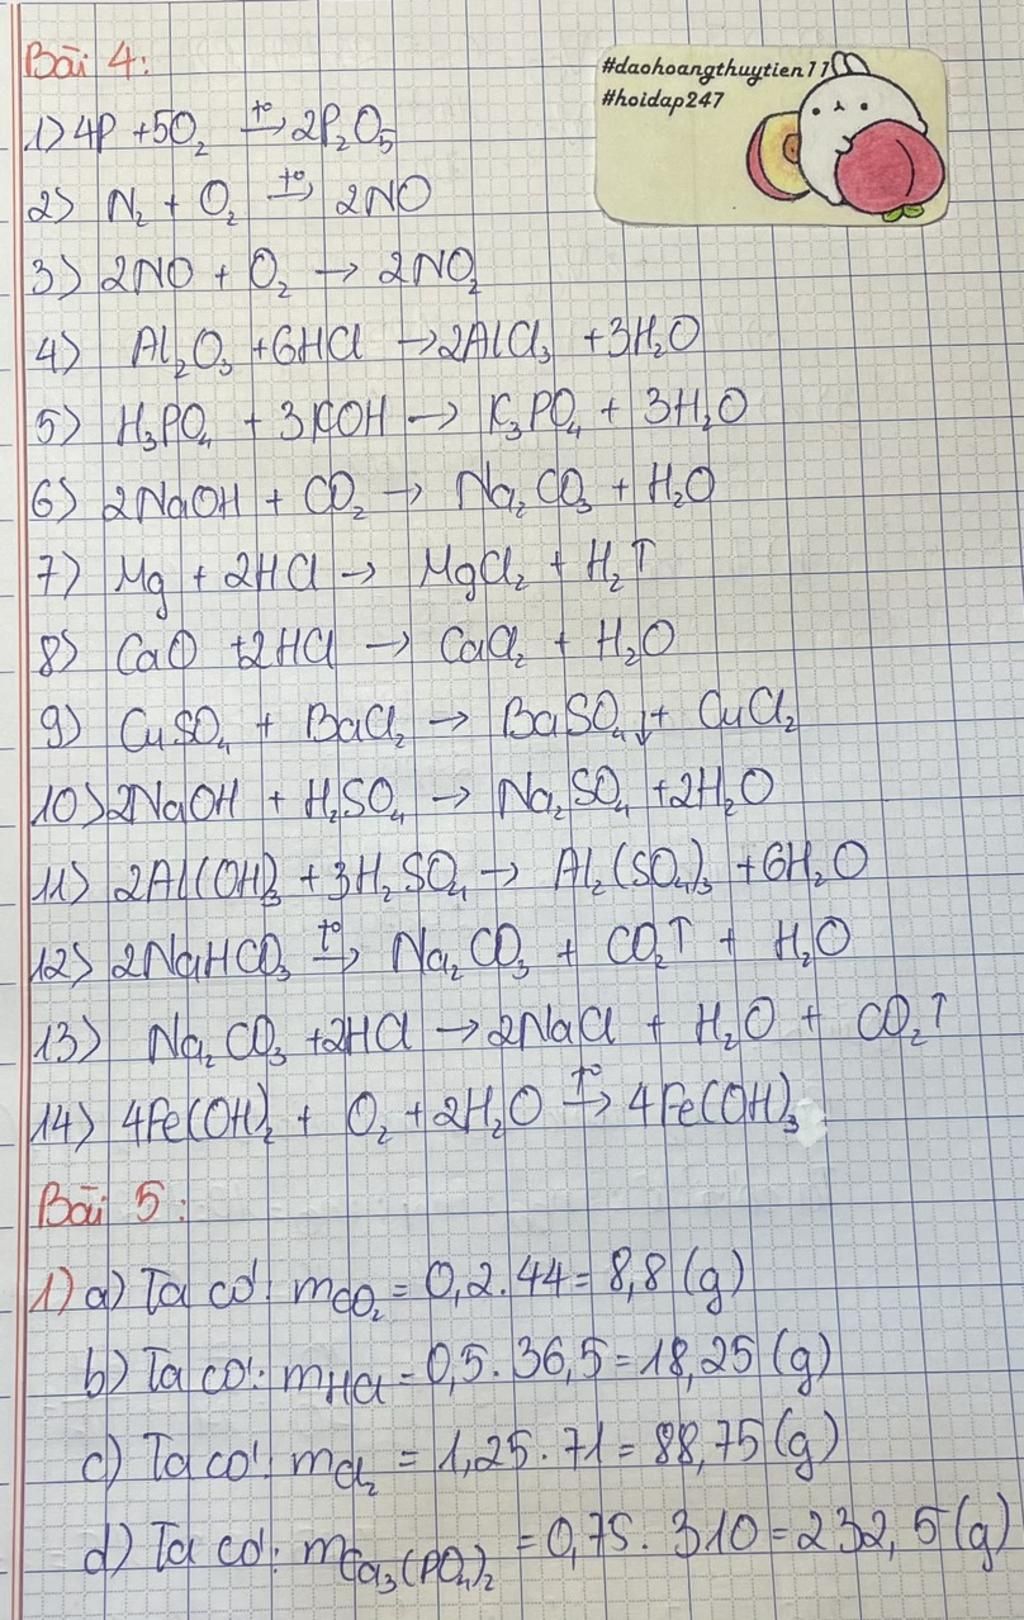 Bài 4:
#daohoangthuytien11
#hoidap247
1) 4P + 5O₂ →(t°) 2P₂O₅
2) N₂ + O₂ →(t°) 2NO
3) 2NO + O₂ → 2NO₂
4) Al₂O₃ + 6HCl → 2AlCl₃ + 3H₂O
5) H₃PO₄ + 3KOH → K₃PO₄ + 3H₂O
6) 2NaOH + CO₂ → Na₂CO₃ + H₂O
7) Mg + 2HCl → MgCl₂ + H₂↑
8) CaO + 2HCl → CaCl₂ + H₂O
9) CuSO₄ + BaCl₂ → BaSO₄↓ + CuCl₂
10) 2NaOH + H₂SO₄ → Na₂SO₄ + 2H₂O
11) 2Al(OH)₃ + 3H₂SO₄ → Al₂(SO₄)₃ + 6H₂O
12) 2NaHCO₃ →(t°) Na₂CO₃ + CO₂↑ + H₂O
13) Na₂CO₃ + 2HCl → 2NaCl + H₂O + CO₂↑
14) 4Fe(OH)₂ + O₂ + 2H₂O →(t°) 4Fe(OH)₃
Bài 5:
1) a) Ta có: mCO₂ = 0,2.44 = 8,8 (g)
b) Ta có: mHCl = 0,5.36,5 = 18,25 (g)
c) Ta có: mCl₂ = 1,25.71 = 88,75 (g)
d) Ta có: mCa₃(PO₄)₂ = 0,75.310 = 232,5 (g)